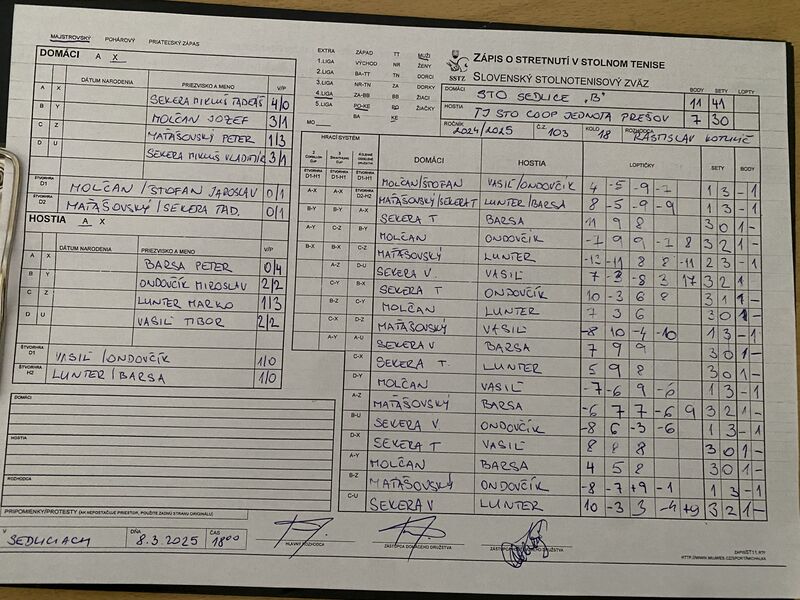 MAJSTROVSKÝ POHÁROVÝ PRIATEĽSKÝ ZÁPAS
DOMÁCI A X
DÁTUM NARODENIA PRIEZVISKO A MENO V/P
A X SEKERA MIKULÁŠ TADEÁŠ 4/0
B Y MOLČAN JOZEF 3/1
C Z MATÁŠOVSKÝ PETER 1/3
D U SEKERA MIKULÁŠ VLADIMÍR 3/1
ŠTVORHRA D1 MOLČAN / ŠTOFAN JAROSLAV 0/1
D2 MATÁŠOVSKÝ / SEKERA TAD. 0/1
HOSTIA A X
DÁTUM NARODENIA PRIEZVISKO A MENO V/P
A X BARSA PETER 0/4
B Y ONDOVČÍK MIROSLAV 2/2
C Z LUNTER MARKO 1/3
D U VASIĽ TIBOR 2/2
ŠTVORHRA D1 VASIĽ / ONDOVČÍK 1/0
ŠTVORHRA H2 LUNTER / BARSA 1/0
DOMÁCI
HOSTIA
ROZHODCA
PRIPOMIENKY/PROTESTY (AK NEPOSTAČUJE PRIESTOR, POUŽITE ZADNÚ STRANU ORIGINÁLU)
V SEDLICIACH DŇA 8.3.2025 ČAS 18:00
HLAVNÝ ROZHODCA
ZÁSTUPCA DOMÁCEHO DRUŽSTVA
EXTRA ZÁPAD TT MUŽI
1.LIGA VÝCHOD NR ŽENY
2.LIGA BA-TT TN DORCI
3.LIGA NR-TN ZA DORKY
4.LIGA ZA-BB BB ŽIACI
5.LIGA PO-KE PO ŽIAČKY
BA KE
MO
SSTZ
ZÁPIS O STRETNUTÍ V STOLNOM TENISE
SLOVENSKÝ STOLNOTENISOVÝ ZVÄZ
BODY SETY LOPTY
DOMÁCI STO SEDLICE "B" 11 41
HOSTIA TJ STO COOP JEDNOTA PREŠOV 7 30
ROČNÍK 2024/2025 Č.Z. 103 KOLO 18 ROZHODCA RASTISLAV
HRACÍ SYSTÉM DOMÁCI HOSTIA LOPTIČKY SETY BODY
MOLČAN/ŠTOFAN VASIĽ/ONDOVČÍK 4 -5 -9 -7 1 3 - 1
MATÁŠOVSKÝ/SEKERA T LUNTER/BARSA 8 -5 -9 -9 1 3 - 1
SEKERA T BARSA 11 9 8 3 0 1 -
MOLČAN ONDOVČÍK -7 9 9 -7 8 3 2 1 -
MATÁŠOVSKÝ LUNTER -12 -11 8 8 -11 2 3 - 1
SEKERA V. VASIĽ 7 -3 -8 3 17 3 2 1
SEKERA T ONDOVČÍK 10 -3 6 8 3 1 1 -
MOLČAN LUNTER 7 3 6 3 0 1 -
MATÁŠOVSKÝ VASIĽ -8 10 -4 -10 1 3 - 1
SEKERA V BARSA 7 9 9 3 0 1 -
SEKERA T. LUNTER 5 9 8 3 0 1 -
MOLČAN VASIĽ -7 -6 9 -6 1 3 - 1
MATÁŠOVSKÝ BARSA -6 7 7 -6 9 3 2 1 -
SEKERA V ONDOVČÍK -8 6 -3 -6 1 3 - 1
SEKERA T VASIĽ 8 8 8 3 0 1 -
MOLČAN BARSA 4 5 8 3 0 1 -
MATÁŠOVSKÝ ONDOVČÍK -8 -7 +9 -1 1 3 - 1
SEKERA V LUNTER 10 -3 3 -4 +9 3 2 1 -